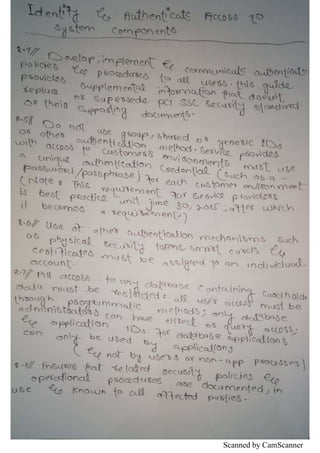 Identify & Authenticate Access to
System Components
8.4// Develop, implement & communicate authentication
policies & procedures to all users. this guide
provides supplemental information that doesn't
replace or supersede PCI SSC Security Standard
or their supporting documents.
8.5// Do not use group, shared or generic IDs
or other authentication method. Service provides
with access to customers environments must use
a unique authentication credential (such as a -
password/passphrase) for each customer environment
(Note: This requirement for service providers
is best practice unit june 30, 2015, after which
it becomes a requirement.)
8.6// Use of other authentication mechanisms such
as physical security tokens, smart cards &
certificates must be assigned to an individual
account.
8.7// All access to any database containing cardholder
data must be restricted: all user access must be
through programmatic methods; only database
administrators can have direct or query access;
& application IDs for database applications
can only be used by applications
(& not by users or non-app processes)
8.8// Ensures that related security policies &
operational procedures are documented, in
use & known to all affected parties.
Scanned by CamScanner